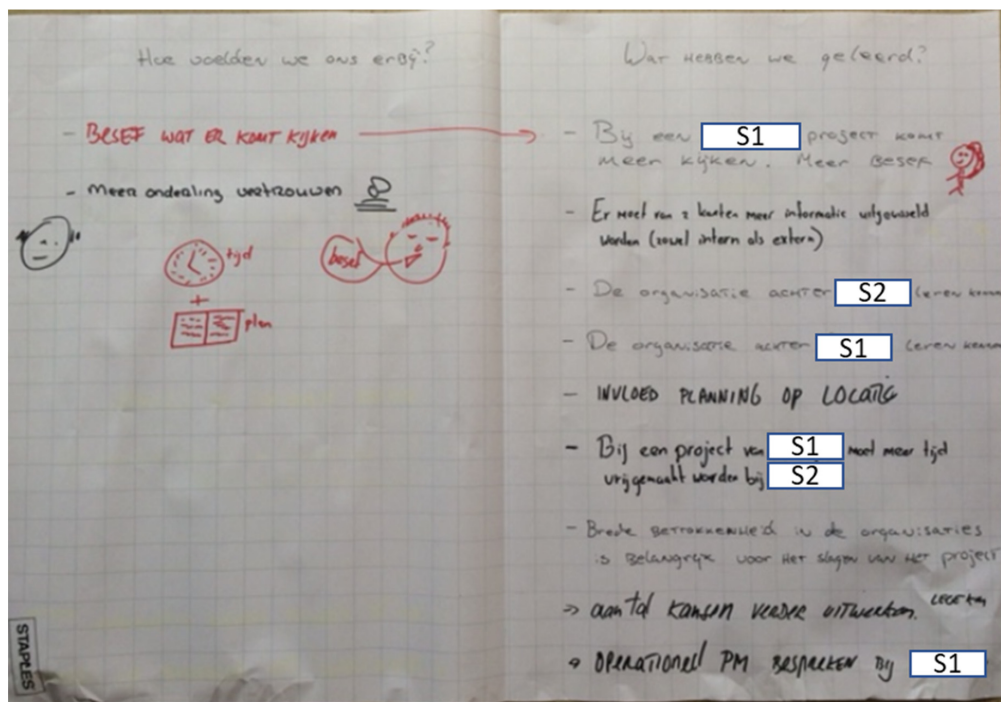 Hoe voelden we ons erbij?
- BESEF WAT ER KOMT KIJKEN
- Meer onderling vertrouwen
tijd
+
plan
besef
STAPLES
Wat hebben we geleerd?
- Bij een S1 project komt
meer kijken. Meer besef
- Er moet van 2 kanten meer informatie uitgewisseld
worden (zowel intern als extern)
- De organisatie achter S2 leren kenn
- De organisatie achter S1 leren kenn
- INVLOED PLANNING OP LOCATIE
- Bij een project van S1 moet meer tijd
vrijgemaakt worden bij S2
- Brede betrokkenheid in de organisaties
is belangrijk voor het slagen van het project
-> aantal kansen verder uitwerken.
OPERATIONEEL PM BESPREKEN Bij S1